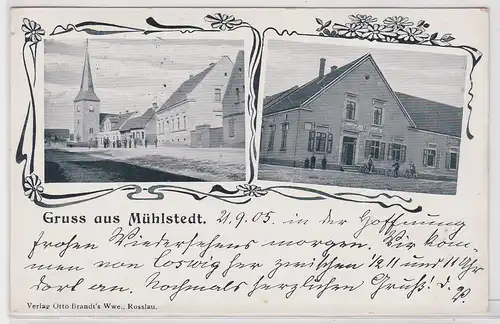 Gruss aus Mühlstedt. 21.9.05. in der Hoffnung
frohen Wiedersehens morgen. Wir kom-
men von Coswig her zwischen 1/2 11 und 11 Uhr
dort an. Nochmals herzlichen Gruß! d. O.
Verlag Otto Brandt's Wwe., Rosslau.